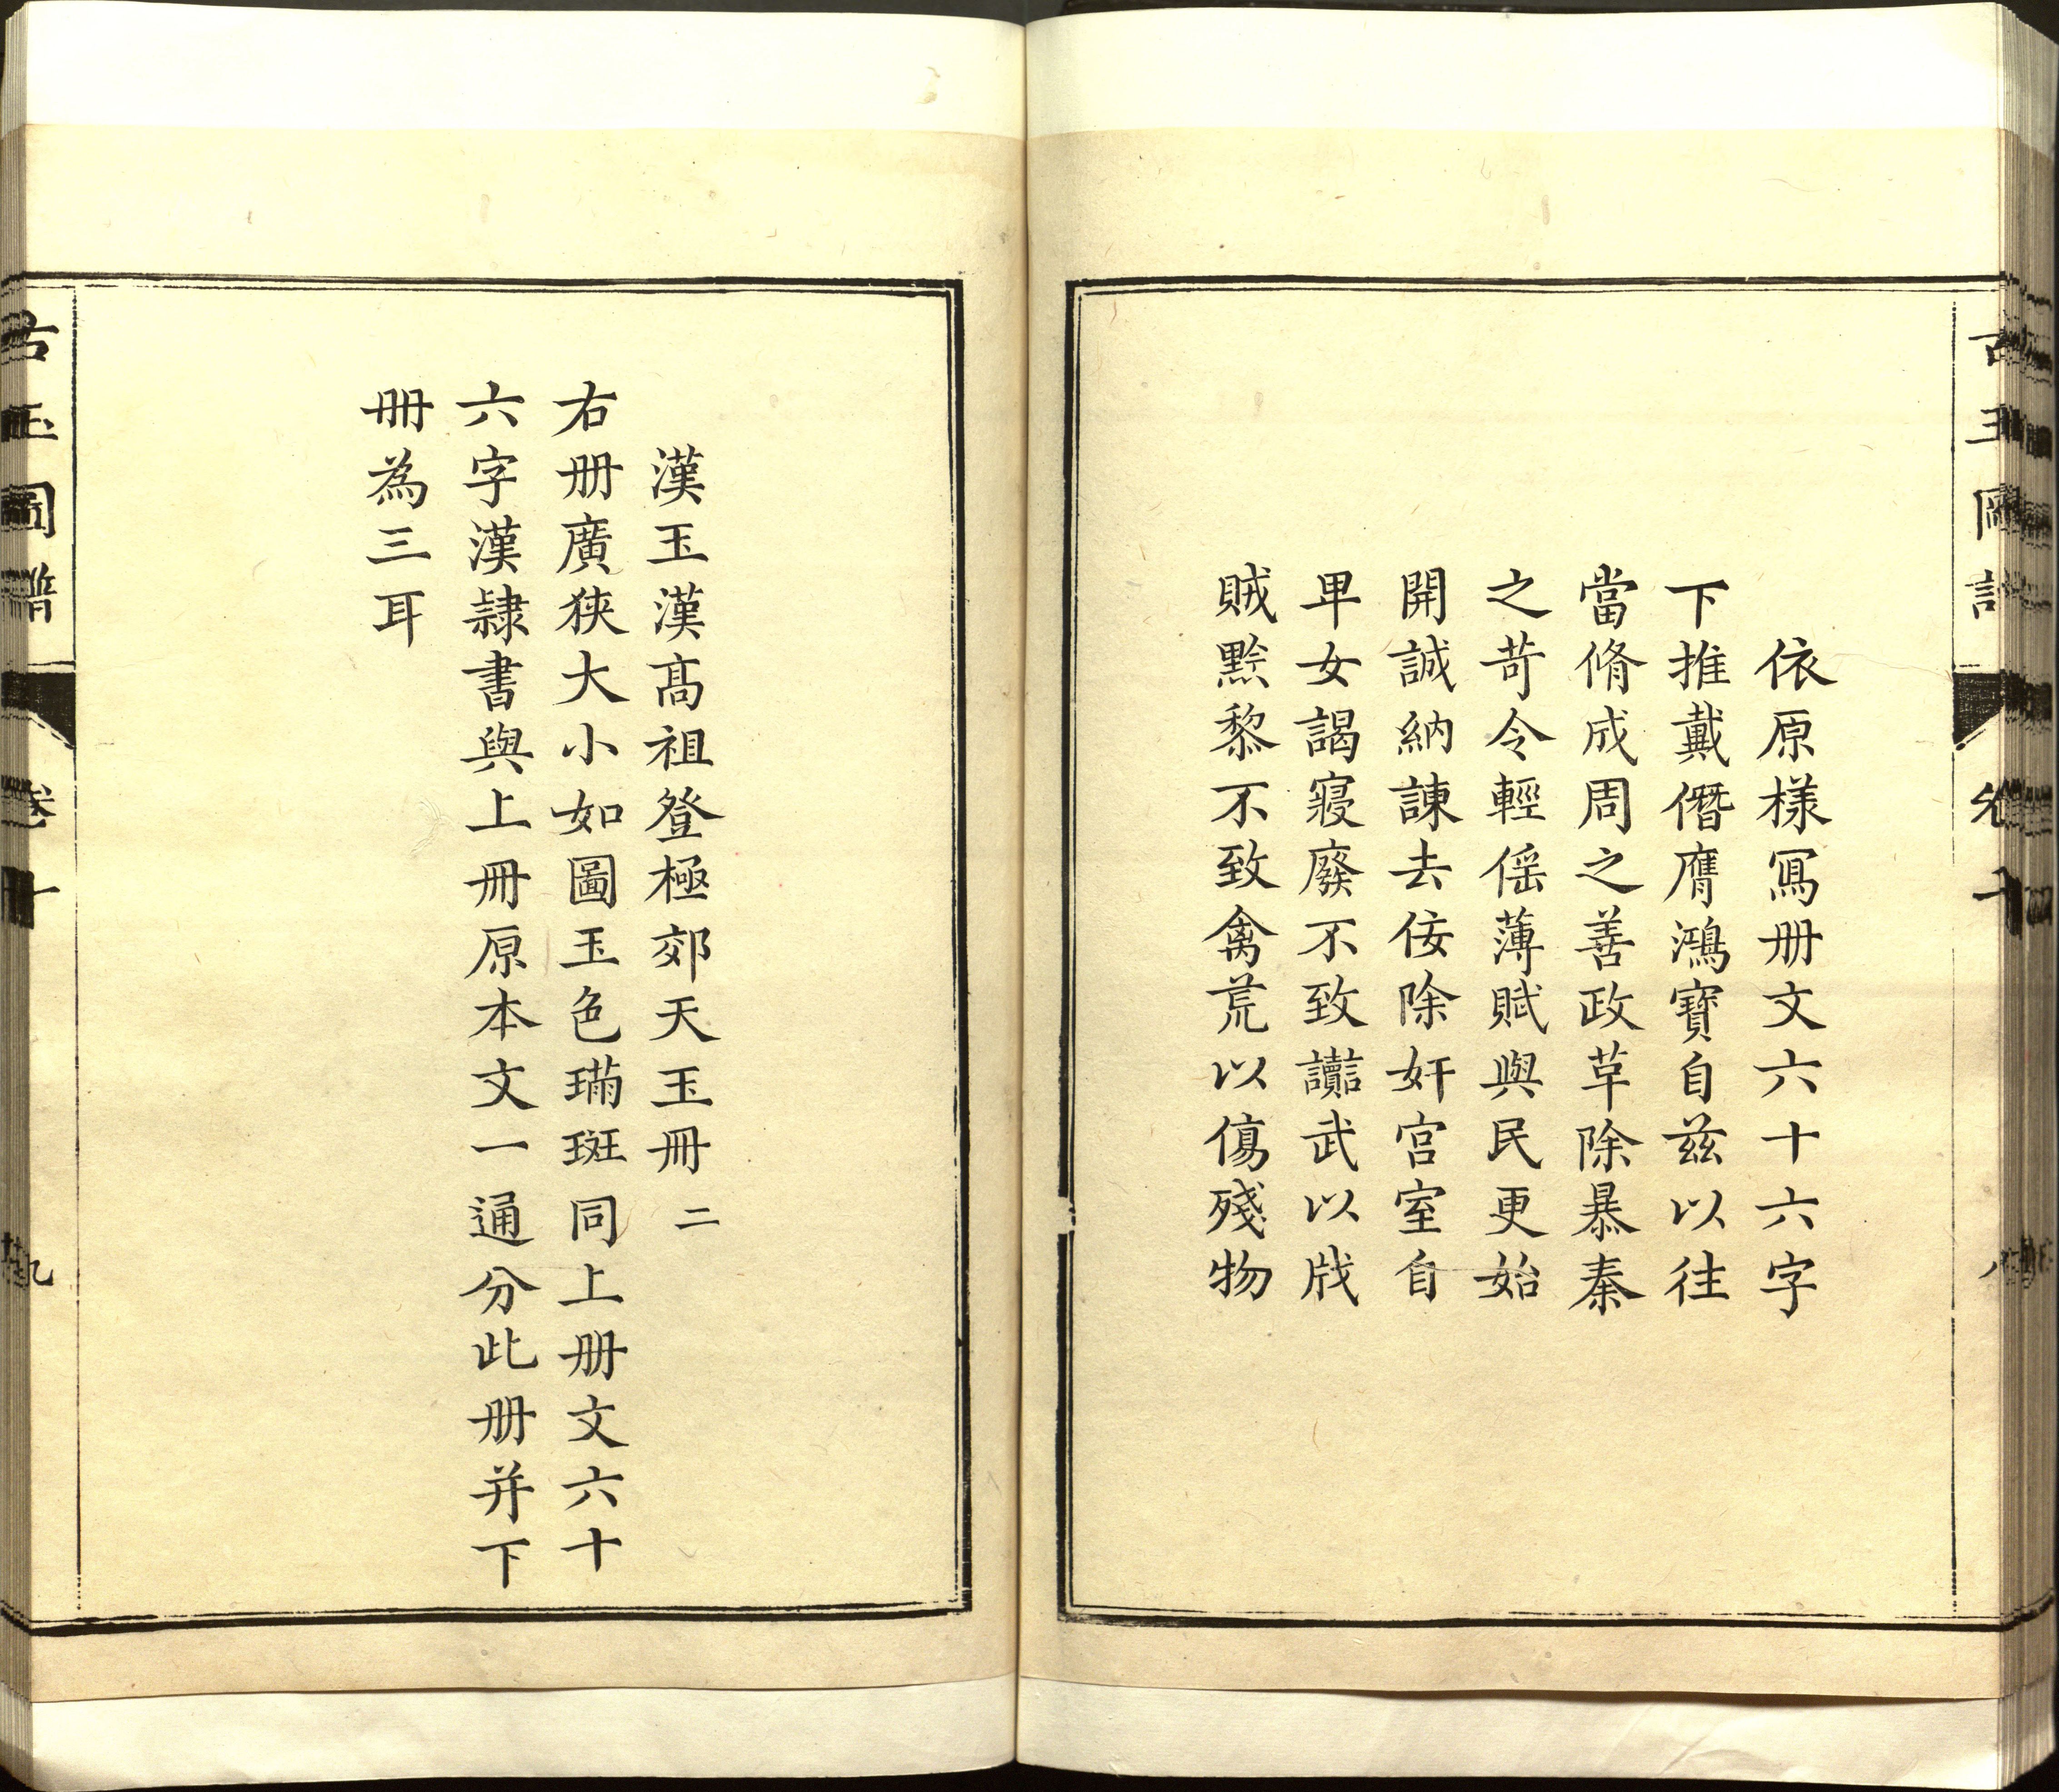 依原樣寫册文六十六字
下推戴僭膺鴻寶自兹以往
當脩成周之善政革除暴秦
之苛令輕徭薄賦與民更始
開誠納諫去佞除奸宫室自
卑女謁寢廢不致讟武以戕
賊黔黎不致禽荒以傷殘物
漢玉漢高祖登極郊天玉冊 二
右册廣狹大小如圖玉色璊斑同上册文六十
六字漢隷書與上冊原本文一通分此册并下
冊為三耳
古玉圖譜 卷十 九